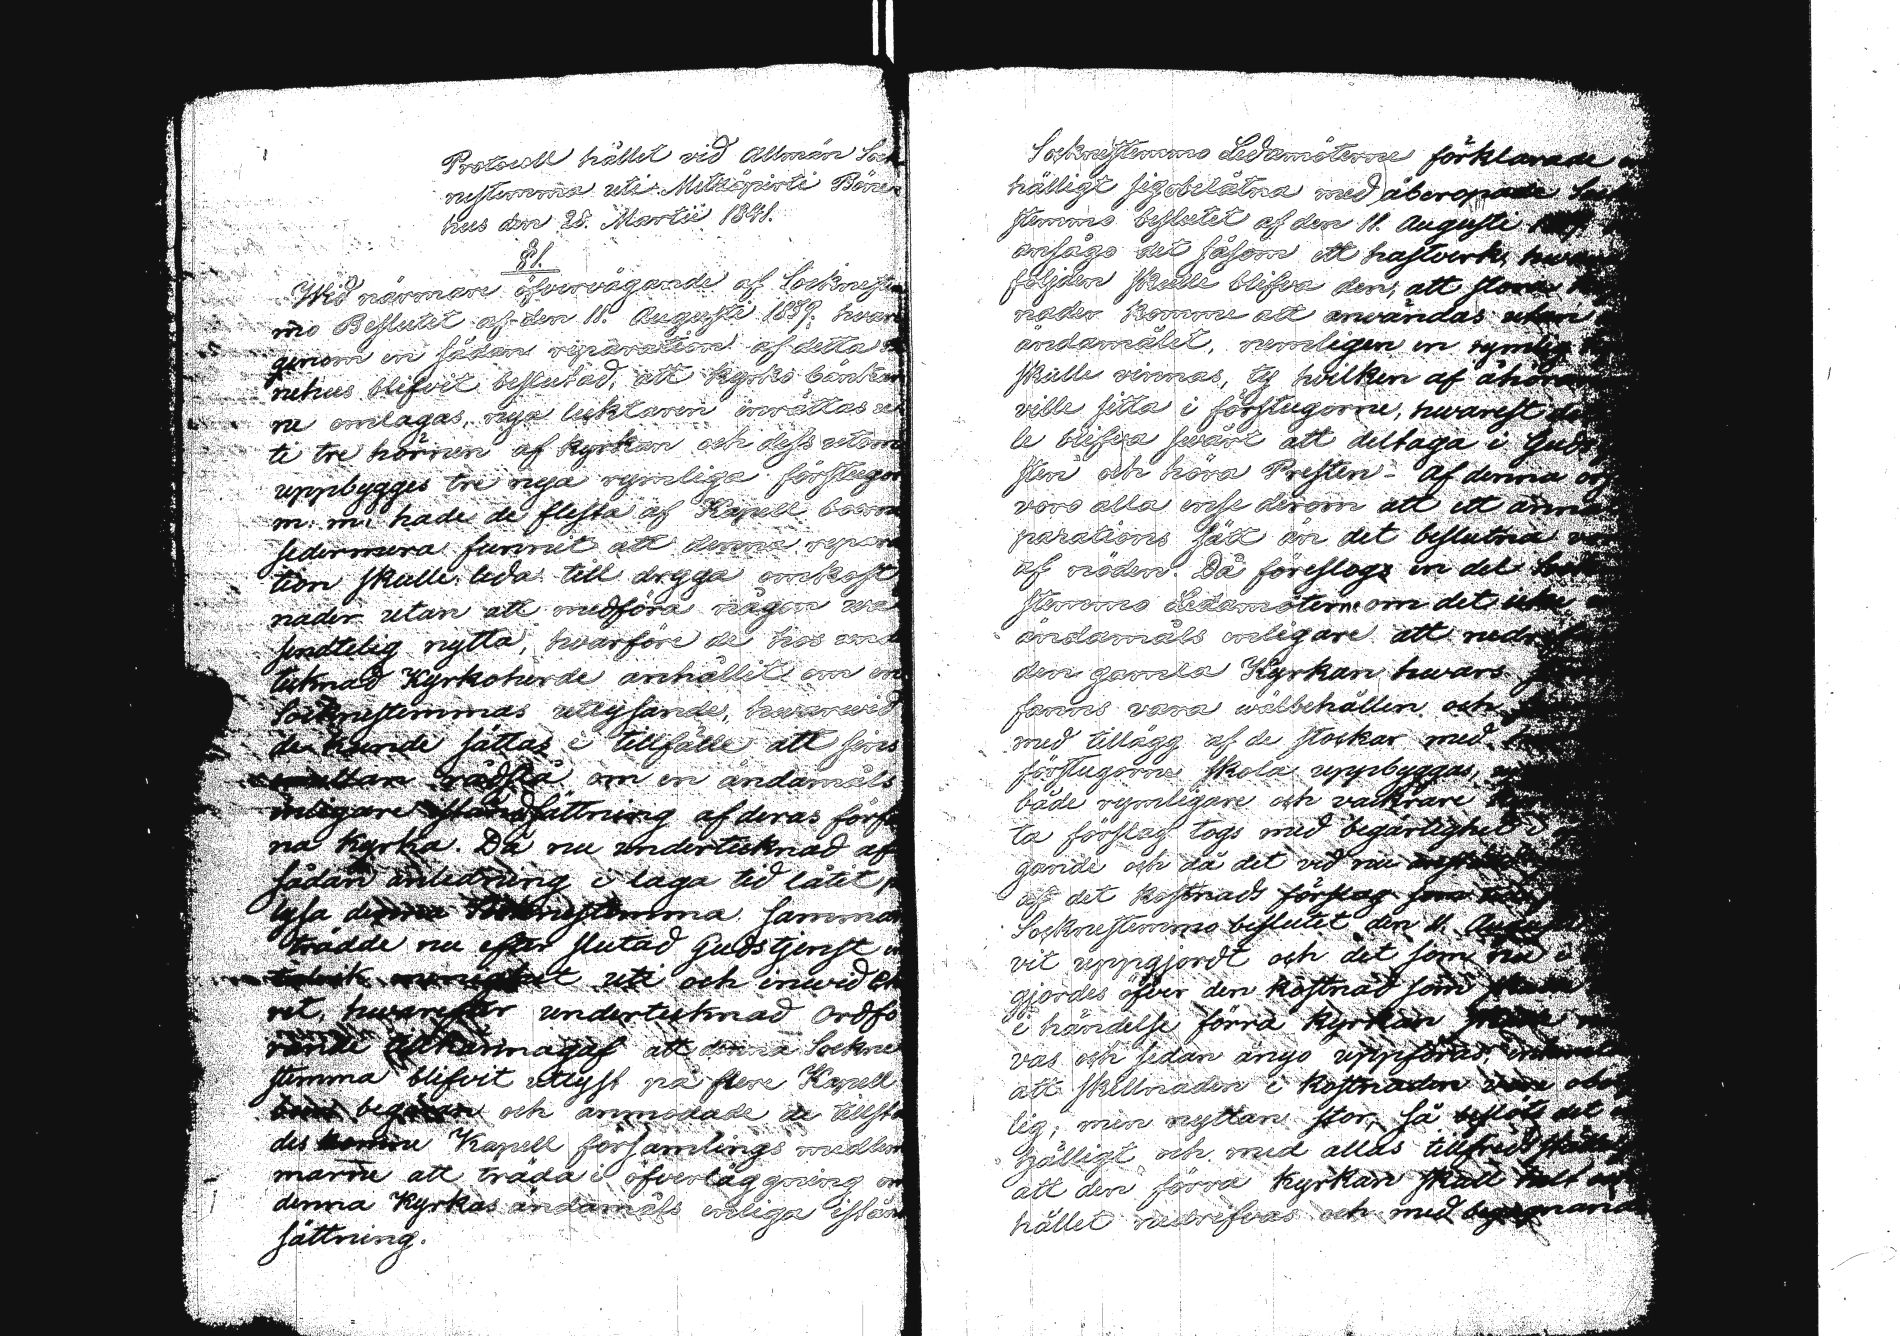 Protocoll hållet vid Allmän Sock
nestemma uti Metsäpirti Böne
hus den 28. Martii 1841.
§1.
Wid närmare öfvervägande af Socknestem
mo Beslutet af den 11. Augusti 1839, hvar
genom en sådan reparation af detta
nehus blifvit beslutad, att kyrko bänkar
ne omlagas, nya lecktaren inrättas u
ti tre hörnen af kyrkan och dess utom
uppbygges tre nya rymliga förstugor
m. m. hade de flesta af Kapell boerne
sedermera funnit att denna repara
tion skulle leda till dryga omkost
nader utan att medföra någon vä
sendtelig nytta, hvarföre de hos unde
tecknad Kyrkoherde anhållit om en
Socknestemmas utlysande, hvarvid
de kunde sättas i tillfälle att sins
emellan rådslå om en ändamåls
enligare iståndsättning af deras förfa
na Kyrka. Då nu undertecknad af
sådan anledning i laga tid låtit
lysa denna Socknestemma, samman
trädde nu efter slutad Gudstjenst
talrik menighet uti och invid
ret, hvarefter undertecknad Ordfö
rande tillkännagaf att denna Sockne
stemma blifvit utlyst på flere Kapell
boers begäran och anmodade de tillstä
des komne Kapell församlings medlem
marne att träda i öfverläggning om
denna Kyrkas ändamåls enliga istånd
sättning.
Socknestemmo Ledamöterne förklarade
hälligt sig obelåtna med åberopade Sock
stemmo beslutet af den 11. Augusti
ansågo det såsom ett hastverk, hvar
följden skulle blifva den, att stora
nader komme att användas utan
ändamålet, nemligen en rymlig
skulle vinnas, ty hvilken af åhöra
ville sitta i förstugorne, hvarest det
le blifva svårt att deltaga i Guds
sten och höra Presten - Af denna ors
voro alla ense derom att ett anna
parations sätt än det beslutna vor
af nöden. Då föreslogs en del
stemmo Ledamöterne om det icke
ändamåls enligare att nedrifva
den gamla Kyrkan hvars
fanns vara wälbehållen och
med tillägg af de stockar med
förstugorne skola uppbyggas,
både rymligare och vackrare
ta förslag togs med begärlighet i
gande och då det vid nu
af det kostnads förslag som
Socknestemmo beslutet den 11. Augusti
vit uppgjordt och det som nu i
gjordes öfver den kostnad som skulle
i händelse förra kyrkan skulle
vas och sedan ånyo uppföras,
att skillnaden i kostnaden vore obe
lig, men nyttan stor, så beslöts det
hälligt och med allas tillfreds
att den förra kyrkan skall helt och
hållet nedrifvas och med begagnande